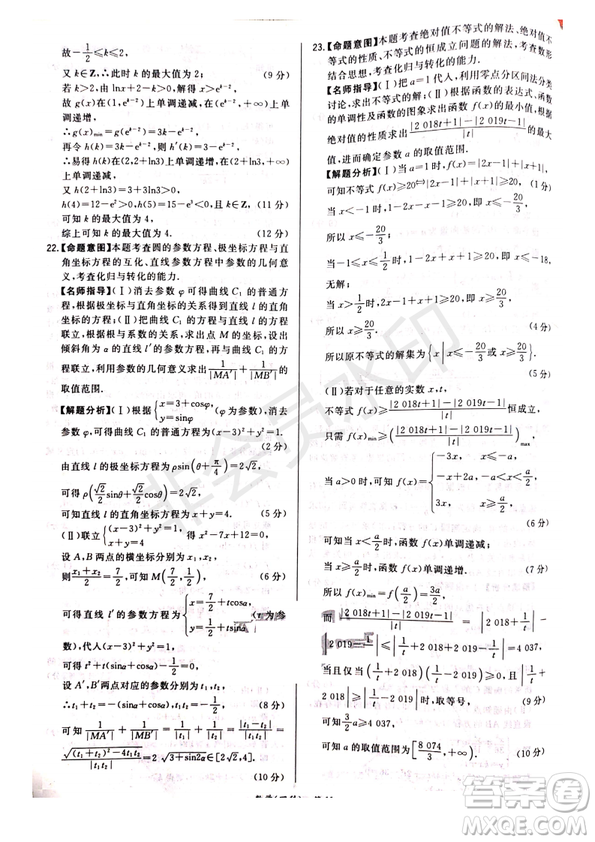 故-1/2≤k≤2,
又 k∈Z,所以此时 k 的最大值为 2; (9 分)
若 k>2,由 lnx+2-k=0,可得 x=e^{k-2}.
所以 g(x)在(1,e^{k-2})上单调递减,在(e^{k-2},+∞)上单调递增.
∴g(x)min=g(e^{k-2})=3k-e^{k-2}.
再令 h(k)=3k-e^{k-2},则 h'(k)=3-e^{k-2}.
易得 h(k)在(2,2+ln3)上单调递增,在(2+ln3,+∞)上单调递减.
又 h(2+ln3)=3+3ln3>0,
h(4)=12-e²>0,h(5)=15-e³<0, (11 分)
可知 k 的最大值为 4,
综上可知 k 的最大值为 4. (12 分)
22.【命题意图】本题考查圆的参数方程、极坐标方程与直角坐标方程的互化、直线参数方程中参数的几何意义,考查化归与转化的能力.
【名师指导】(Ⅰ)消去参数 φ 可得曲线 C₁ 的普通方程,根据极坐标与直角坐标的互化可得直线 l 的直角坐标方程;(Ⅱ)联立直线 l 与曲线 C₁ 的普通方程,根据根与系数的关系,求出点 M 的坐标,设出倾斜角为 α 的直线 l' 的参数方程,与曲线 C₁ 的方程联立,利用参数的几何意义,求出 1/|MA'|+1/|MB'| 的取值范围.
【解题分析】(Ⅰ){x=3+cosφ, y=sinφ (φ为参数),消去参数 φ,可得曲线 C₁ 的普通方程为(x-3)²+y²=1. (2 分)
由直线 l 的极坐标方程为 ρsin(θ+π/4)=2√2,
可得 ρ(√2/2 sinθ+√2/2 cosθ)=2√2,
可得直线 l 的直角坐标方程为 x+y=4. (5 分)
(Ⅱ)联立{(x-3)²+y²=1, x+y=4 得 x²-7x+12=0,
设 A,B 两点的横坐标分别为 x₁,x₂,
则 (x₁+x₂)/2=7/2,可知 M(7/2,1/2), (6 分)
可得直线 l' 的参数方程为{x=7/2+tcosα, y=1/2+tsinα (t 为参数),代入(x-3)²+y²=1,
可得 t²+(sinα+cosα)t-1/2=0,
设 A',B' 两点对应的参数分别为 t₁,t₂,
∴t₁+t₂=-(sinα+cosα),t₁t₂=-1/2,
可知 1/|MA'|+1/|MB'|=1/|t₁|+1/|t₂|=|t₁-t₂|/|t₁t₂|=
√((t₁+t₂)²-4t₁t₂)/|t₁t₂|=2√(3+sin2α)∈[2√2,4]. (10 分)
23.【命题意图】本题考查绝对值不等式的解法、绝对值不等式的性质、不等式的恒成立问题的解法,考查数形结合思想,考查化归与转化的能力.
【名师指导】(Ⅰ)把 a=1 代入,利用零点分区间法分类讨论,求出不等式的解集;(Ⅱ)根据函数的表达式、函数的单调性及函数的图象求出函数的最小值,根据绝对值的性质求出|2 018t+1|-|2 019t-1|/|t|的最大值,进而确定参数 a 的取值范围.
【解题分析】(Ⅰ)由题可知 f(x)=|2x-1|+|x+1|,
可知不等式 f(x)≥20⇔|2x-1|+|x+1|≥20,
当 x<-1 时,1-2x-x-1≥20,即 x≤-20/3,
所以 x≤-20/3;
当-1≤x<1/2时,1-2x+x+1≥20,即 x≤-18,
无解;
当 x≥1/2 时,2x-1+x+1≥20,即 x≥20/3,
可知 x≥20/3. (4 分)
所以原不等式的解集为{x|x≤-20/3或x≥20/3}. (5 分)
(Ⅱ)若对于任意的实数 x,t,
不等式 f(x)≥(|2 018t+1|-|2 019t-1|)/|t| 恒成立,
只需 f(x)min≥[(|2 018t+1|-|2 019t-1|)/|t|]max.
当 a>0 时,可知 f(x)={-3x,x≤-a
-x+2a,-a<x<a/2
3x,x≥a/2 (6 分)
可知当 x<a/2 时,函数 f(x)单调递减;
当 x≥a/2 时,函数 f(x)单调递增.
所以 f(x)min=f(a/2)=3a/2. (7 分)
而 (|2 018t+1|-|2 019t-1|)/|t|=|2 018+1/t|-
|2 019-1/t|≤|(1/t+2 018)-(1/t-2 019)|=4 037,
当且仅当(1/t+2 018)(1/t-2 019)≥0 且|1/t+2 018|≥|1/t-2 019|时,取等号, (9 分)
可知 3a/2≥4 037,
可知 a 的取值范围为[8 074/3,+∞). (10 分)
非会员水印
作业帮